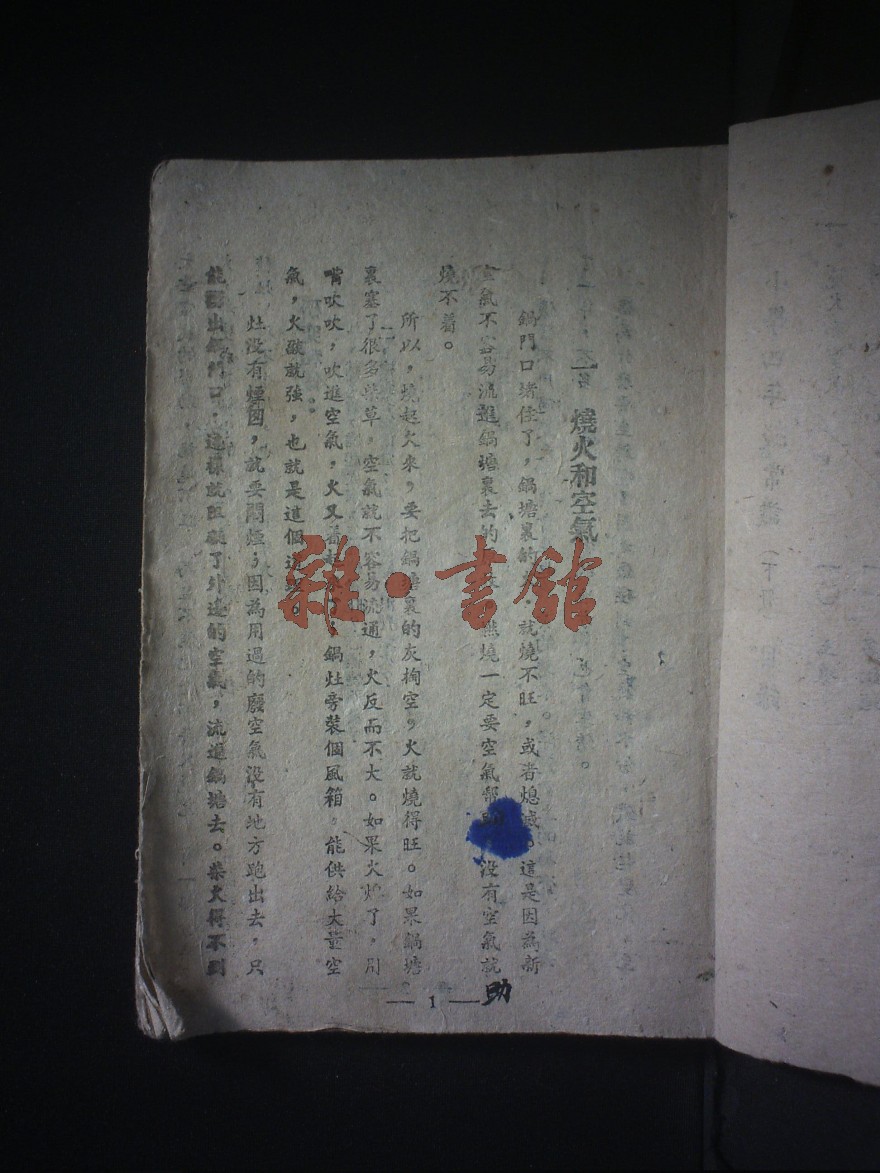 一 燒火和空氣
鍋門口堵住了，鍋塘裏的，就燒不旺，或者熄滅。這是因為新
空氣不容易流進鍋塘裏去的 燃燒一定要空氣幫助 沒有空氣就
燒不着。
所以，燒起火來，要把鍋塘裏的灰掏空，火就燒得旺。如果鍋塘
裏塞了很多柴草，空氣就不容易流通，火反而不大。如果火熄了，用
嘴吹吹，吹進空氣，火又着起來了；鍋灶旁裝個風箱，能供給大量空
氣，火破就強，也就是這個道理。
灶沒有煙囱，就要悶煙；因為用過的廢空氣沒有地方跑出去，只
能 出鍋門口，這樣就阻礙了外邊的空氣，流進鍋塘去。柴火得不到
— 1 —
助
雜·書館